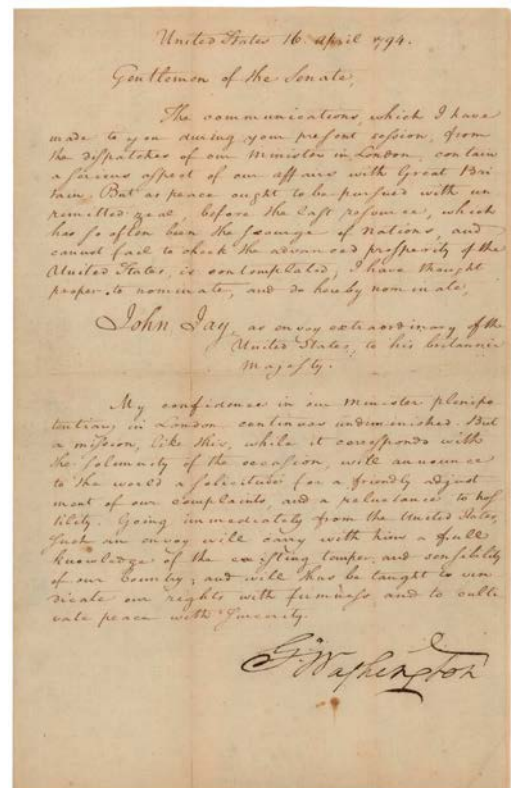 United States 16. April 1794.
Gentlemen of the Senate,
The communications, which I have
made to you during your present session, from
the dispatches of our Minister in London, contain
a serious aspect of our affairs with Great Bri
tain. But as peace ought to be pursued with un
remitted zeal, before the last resource, which
has so often been the scourge of nations, and
cannot fail to check the advanced prosperity of the
United States, is contemplated, I have thought
proper to nominate, and do hereby nominate,
John Jay, as envoy extraordinary of the
United States, to his britannic
majesty.
My confidence in our Minister plenipo
tentiary in London continues undiminished. But
a mission, like this, while it corresponds with
the solemnity of the occasion, will announce
to the world a solicitude for a friendly adjust
ment of our complaints, and a reluctance to hos
tility. Going immediately from the United States,
such an envoy will carry with him a full
knowledge of the existing temper and sensibility
of our Country; and will thus be taught to vin
dicate our rights with firmness and to culti
vate peace with sincerity.
Go: Washington